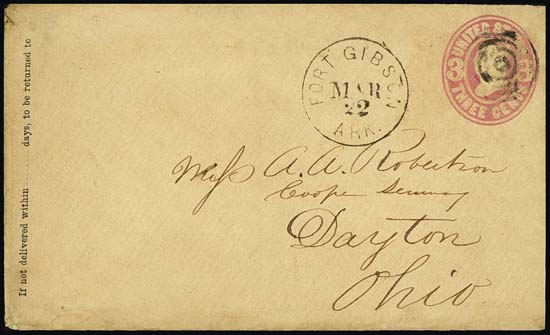 If not delivered within ........ days, to be returned to
FORT GIBSON
MAR
22
ARK.
UNITED
3
THREE CENTS
Miss A. A. Robertson
Cooper Seminary
Dayton
Ohio